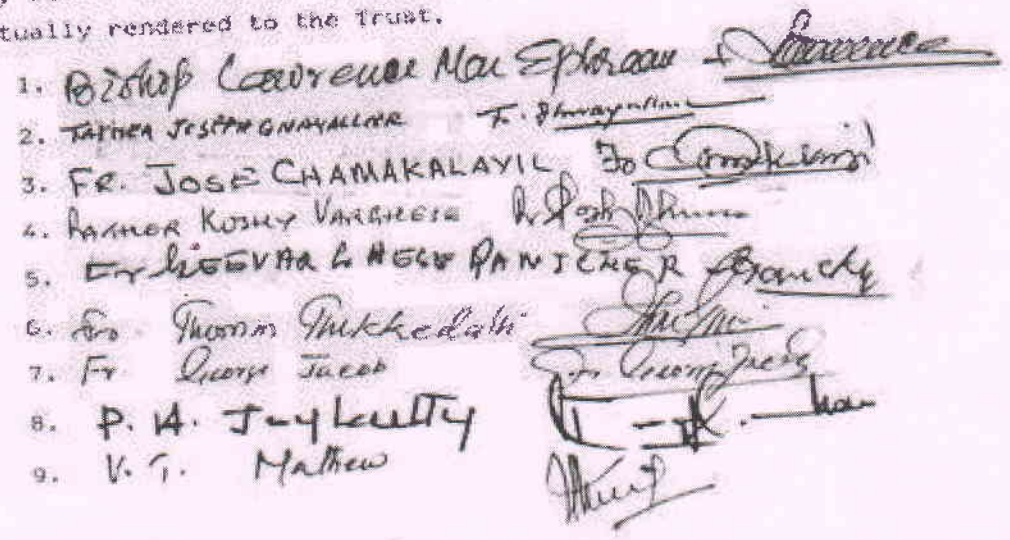 tually rendered to the Trust.
1. Bishop Lawrence Mar Ephraem + Lawrence
2. FATHER JOSEPH GNAYALLOOR Fr.
3. FR. JOSE CHAMAKALAYIL Fr
4. FATHER KOSHY VARGHESE
5. Fr GEEVARGHESE PANICKER
6. Fr. Thomas Thekkedath
7. Fr George Jacob Fr George Jacob
8. P. A. Joykutty
9. V. T. Mathew